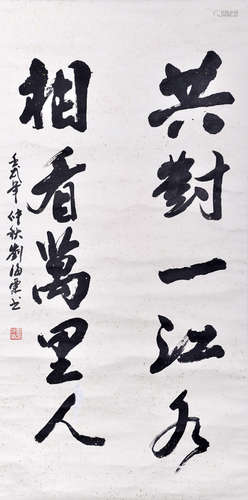 共對一江水
相看萬里人
壬戌年仲秋劉海粟书